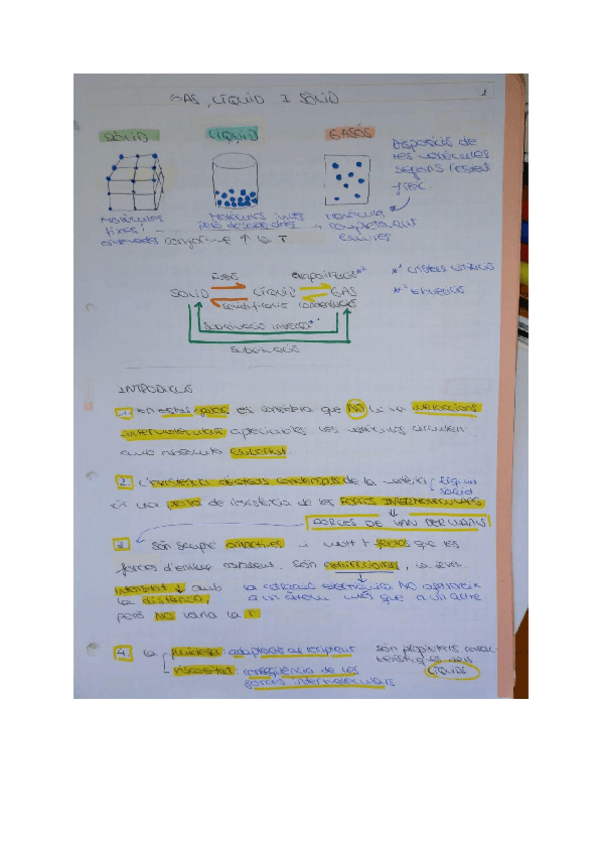 GAS, LÍQUID I SÒLID
1
SÒLID
LÍQUID
GASÓS
Disposició de
les molècules
segons l'estat
físic
Molècules
fixes i
ordenades
Molècules juntes
però desordenades
Molècules
completament
lliures
conforme ↑ la T
fusió
evaporització*²
SÒLID
LÍQUID
GAS
solidificació
condensació
sublimació inversa*¹
sublimació
*²
INTRODUCCIÓ
1. En estat gasós es considera que NO hi ha interaccions
intermoleculars apreciables. Les molècules circulen
amb absoluta llibertat.
2. L'existència d'estats condensats de la matèria líquid
sòlid
és una prova de l'existència de les FORCES INTERMOLECULARS
FORCES DE VAN DER WAALS
3. Són sempre atractives i molt + febles que les
forces d'enllaç covalent. Són , la seva
intensitat ↓ amb
la distància,
però NO varia la T.
NO
a un àtom més que a un altre
4. La fluïdesa: adaptació al recipient
viscositat: conseqüència de les
forces intermoleculars
són propietats
dels
LÍQUIDS